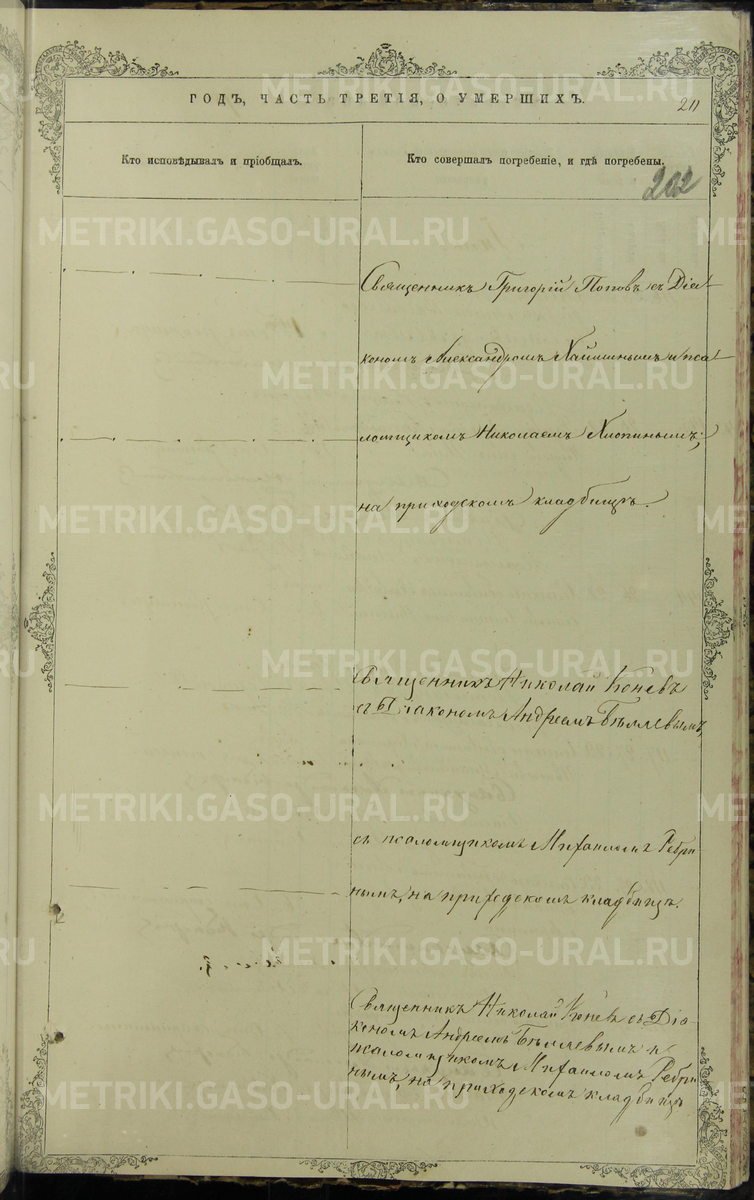 ГОДЪ, ЧАСТЬ ТРЕТІЯ, О УМЕРШИХЪ.
211
Кто исповѣдывалъ и пріобщалъ.
Кто совершалъ погребеніе, и гдѣ погребены.
202
METRIKI.GASO-URAL.RU
Священникъ Григорій Поповъ съ Діа-
кономъ Александромъ и пса-
ломщикомъ Николаемъ Хлопинымъ;
на приходскомъ кладбищѣ.
Священникъ Николай Коневъ
съ Діакономъ Андреемъ Бѣляевымъ,
съ псаломщикомъ Михаиломъ Ребри-
нымъ, на приходскомъ кладбищѣ.
Священникъ Николай Коневъ съ Діа-
кономъ Андреемъ Бѣляевымъ и
псаломщикомъ Михаиломъ Ребри-
нымъ, на приходскомъ кладбищѣ